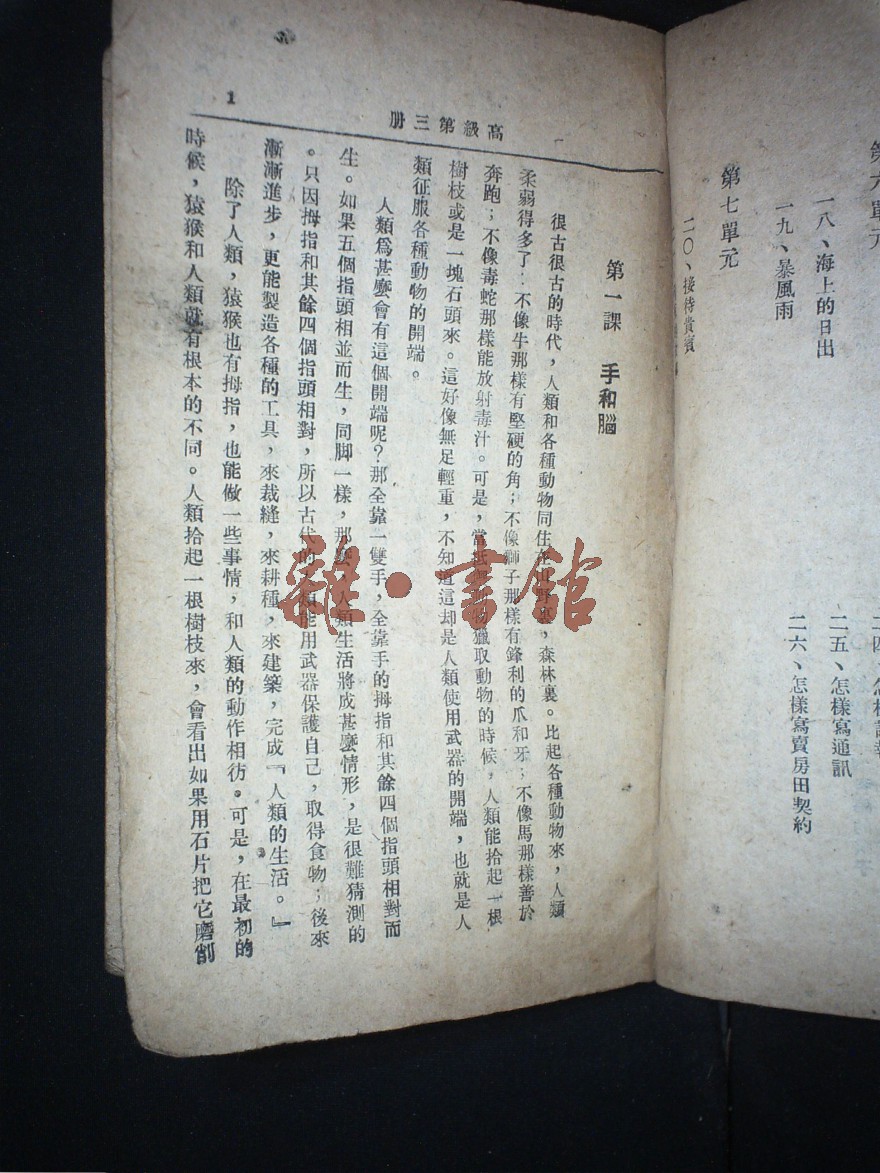 第六單元
一八、海上的日出
一九、暴風雨
第七單元
二〇、接待貴賓
二五、怎樣寫通訊
二六、怎樣寫賣房田契約
高級第三册
1
第一課 手和腦
很古很古的時代，人類和各種動物同住在山野裏，森林裏。比起各種動物來，人類
柔弱得多了：不像牛那樣有堅硬的角；不像獅子那樣有鋒利的爪和牙；不像馬那樣善於
奔跑；不像毒蛇那樣能放射毒汁。可是，當抵禦動物獵取動物的時候，人類能拾起一根
樹枝或是一塊石頭來。這好像無足輕重，不知道這却是人類使用武器的開端，也就是人
類征服各種動物的開端。
人類爲甚麼會有這個開端呢？那全靠一雙手，全靠手的拇指和其餘四個指頭相對而
生。如果五個指頭相並而生，同脚一樣，那麼，人類生活將成甚麼情形，是很難猜測的
。只因拇指和其餘四個指頭相對，所以古代的人類能用武器保護自己，取得食物；後來
漸漸進步，更能製造各種的工具，來裁縫，來耕種，來建築，完成『人類的生活。』
除了人類，猿猴也有拇指，也能做一些事情，和人類的動作相彷。可是，在最初的
時候，猿猴和人類就有根本的不同。人類拾起一根樹枝來，會看出如果用石片把它磨削
雜·書館